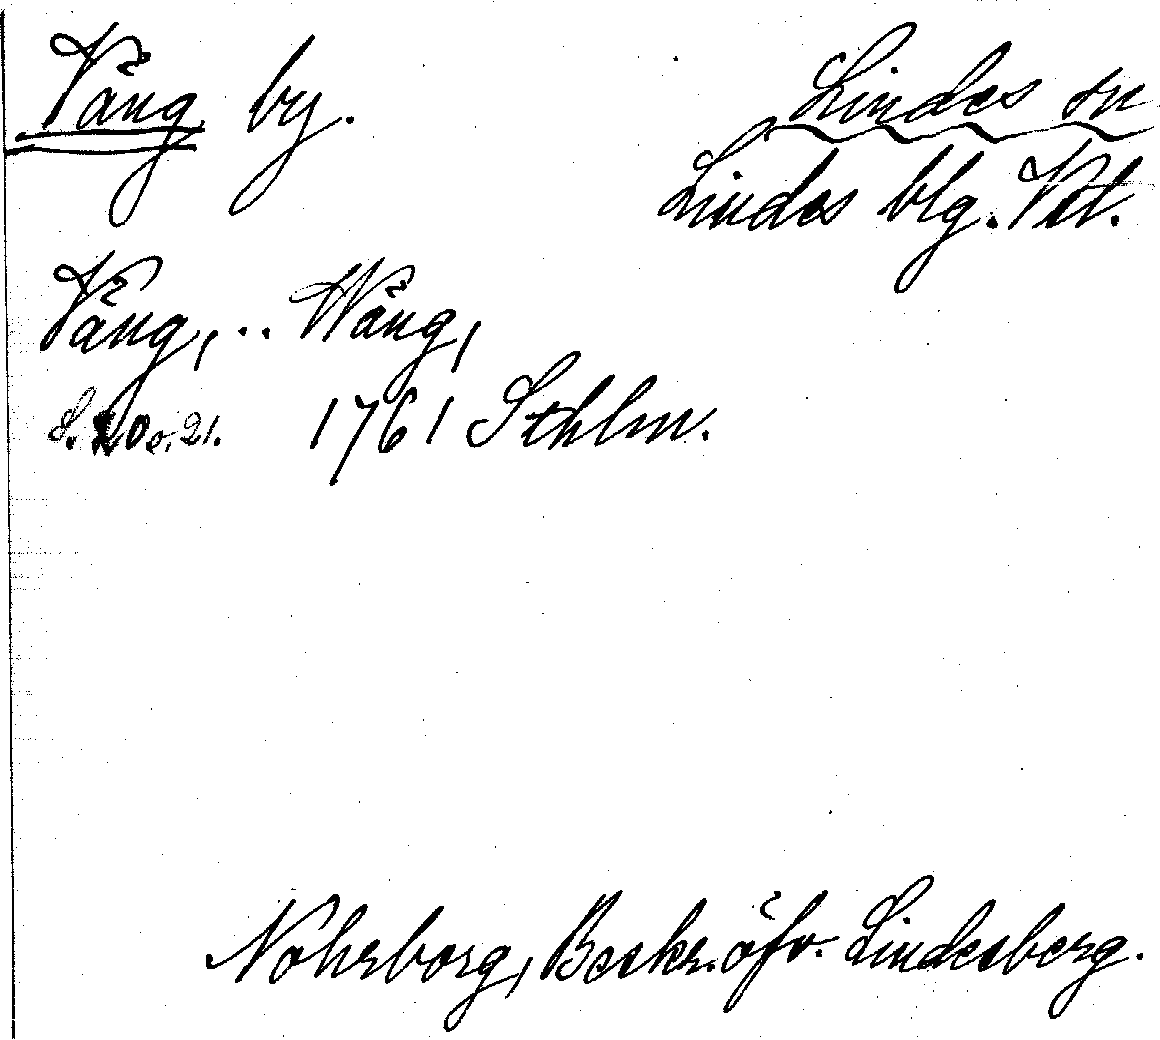 Vång by. Lindes sn
Lindes blg. Vstl.
Vång, .. Wång,
s. 20 o. 21. 1761 Sthlm.
Nohrborg, Beskr. öfv. Lindesberg.